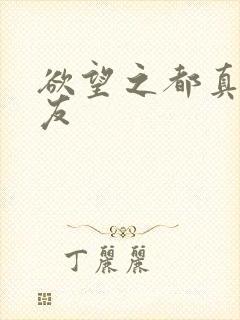 欲望之都真
友
丁麗麗